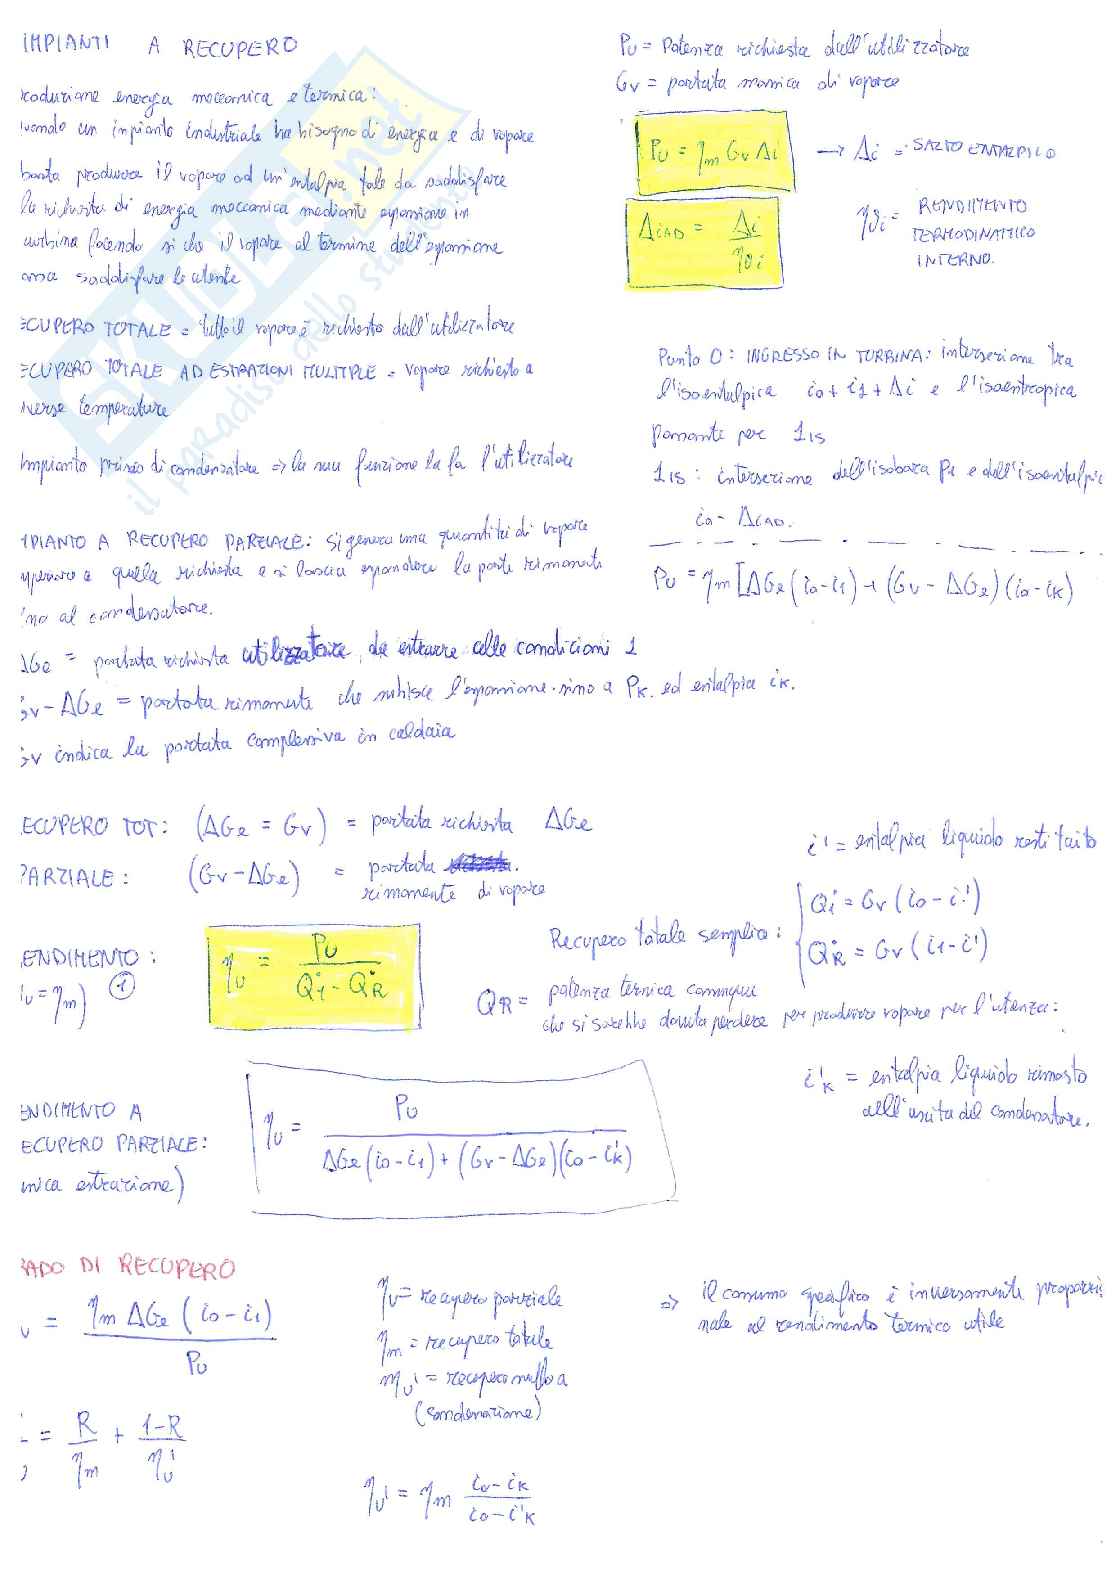 IMPIANTI A RECUPERO
roduzione energia meccanica e termica:
uando un impianto industriale ha bisogno di energia e di vapore
basta produrre il vapore ad un'entalpia tale da soddisfare
la richiesta di energia meccanica mediante espansione in
turbina facendo si che il vapore al termine dell'espansione
ossa soddisfare le utente
ECUPERO TOTALE = tutto il vapore è richiesto dall'utilizzatore
ECUPERO TOTALE AD ESTRAZIONI MULITPLE = vapore richiesto a
iverse temperature
Impianto privo di condensatore => la sua funzione la fa l'utilizzatore
MPIANTO A RECUPERO PARZIALE: si genera una quantità di vapore
uperiore a quella richiesta e si lascia espandere la parte rimanente
ino al condensatore.
ΔGe = portata richiesta utilizzatore, da estrarre alle condizioni 1
Gv - ΔGe = portata rimanente che subisce l'espansione sino a PK. ed entalpia iK.
Gv indica la portata complessiva in caldaia
Pu = Potenza richiesta dall'utilizzatore
Gv = portata massica di vapore
Pu = ηm Gv Δi → Δi = SALTO ENTALPICO
ΔiAD = Δi / ηθi
ηθi = RENDIMENTO
TERMODINAMICO
INTERNO.
Punto 0: INGRESSO IN TURBINA: intersezione tra
l'isoentalpica i0 + i1 + Δi e l'isoentropica
passante per 1IS
1IS: intersezione dell'isobara P1 e dell'isoentalpic
i0 - ΔiAD.
Pu = ηm [ΔGe (i0 - i1) + (Gv - ΔGe) (i0 - iK)
ECUPERO TOT: (ΔGe = Gv) = portata richiesta ΔGe
PARZIALE: (Gv - ΔGe) = portata
rimanente di vapore
ENDIMENTO:
ηu = ηm) ①
ηu = Pu / (Q̇i - Q̇R)
i' = entalpia liquido restituito
Recupero totale semplice: { Q̇i = Gv (i0 - i')
Q̇R = Gv (i1 - i')
QR = potenza termica comunque
che si sarebbe dovuta perdere per produrre vapore per l'utenza:
i'K = entalpia liquido rimasto
all'uscita del condensatore.
ENDIMENTO A
ECUPERO PARZIALE:
unica estrazione)
ηu = Pu / (ΔGe (i0 - i1) + (Gv - ΔGe) (i0 - i'K))
RADO DI RECUPERO
= ηm ΔGe (i0 - i1) / Pu
= R / ηm + (1-R) / ηu'
ηu = recupero parziale
ηm = recupero totale
ηu' = recupero nullo a
(condensazione)
ηu' = ηm (i0 - iK) / (i0 - i'K)
=> il consumo specifico è inversamente proporzi
nale al rendimento termico utile
SKUOLA.net
il paradiso dello studente